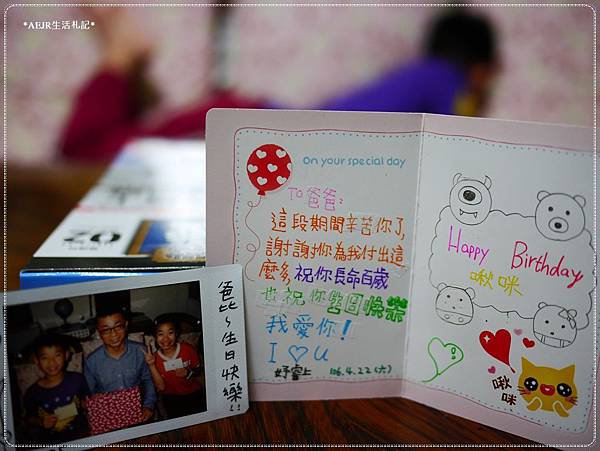 *AEJR生活札記*
on your special day
To 爸爸:
這段期間辛苦你了,
謝謝你為我付出這
麼多,祝你長命百歲
也祝你生日快樂
我愛你!
I ♡ U
妤 上 106.4.22(六)
Happy Birthday
啾咪
啾咪
爸比~生日快樂!!